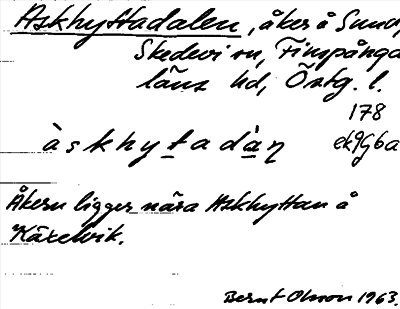 Askhyttadalen, åker å Sund,
Skedevi sn, Finspånga
läns hd, Östg. l.
178
ek9G6a
àskhytadàn
Åkern ligger nära Askhyttan å
Käxelvik.
Bernt Olsson 1963.